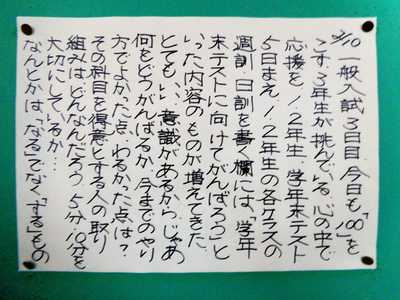 2/10 一般入試3日目 今日も「100」を
こす、3年生が挑んでいる。心の中で
応援を!1、2年生、学年末テスト
5日まえ!1、2年生の各クラスの
週訓・日訓を書く欄には、「学年
末テストに向けてがんばろう」と
いった内容のものが増えてきた
とてもいい意識があるから、じゃあ
何をどうがんばるか、今までのやり
方でよかった点・わるかった点は?
その科目を得意とする人の取り
組みはどんなんだろう、5分、10分を
大切にしているか…
なんとかは「なる」でなく「する」もの